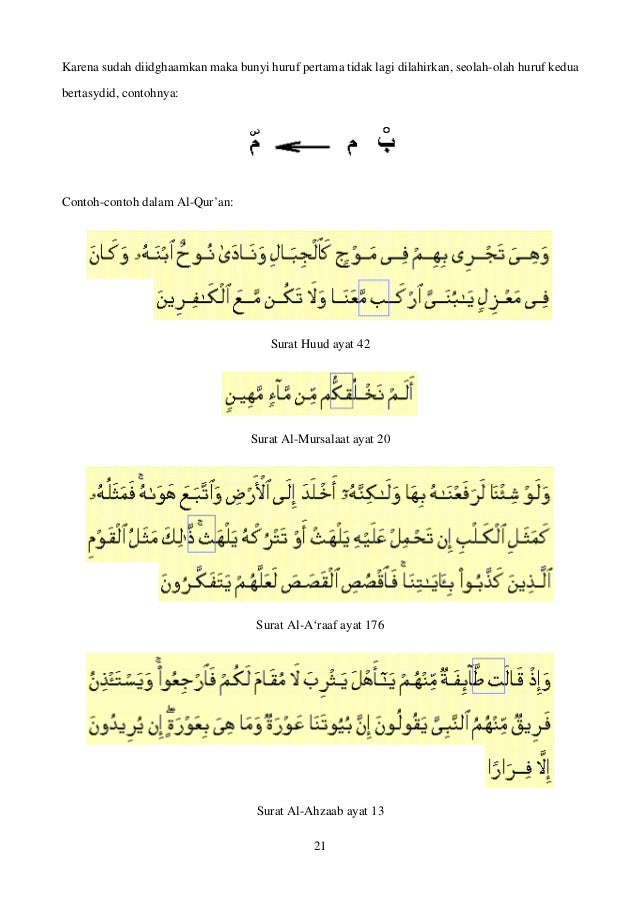 Karena sudah diidghaamkan maka bunyi huruf pertama tidak lagi dilahirkan, seolah-olah huruf kedua
bertasydid, contohnya:
بْ م ← مّ
Contoh-contoh dalam Al-Qur’an:
وَهِىَ تَجْرِى بِهِمْ فِى مَوْجٍ كَٱلْجِبَالِ وَنَادَىٰ نُوحٌ ٱبْنَهُۥ وَكَانَ
فِى مَعْزِلٍ يَـٰبُنَىَّ ٱرْكَب مَّعَنَا وَلَا تَكُن مَّعَ ٱلْكَـٰفِرِينَ
Surat Huud ayat 42
أَلَمْ نَخْلُقكُّم مِّن مَّآءٍ مَّهِينٍ
Surat Al-Mursalaat ayat 20
وَلَوْ شِئْنَا لَرَفَعْنَـٰهُ بِهَا وَلَـٰكِنَّهُۥٓ أَخْلَدَ إِلَى ٱلْأَرْضِ وَٱتَّبَعَ هَوَىٰهُ ۚ فَمَثَلُهُۥ
كَمَثَلِ ٱلْكَلْبِ إِن تَحْمِلْ عَلَيْهِ يَلْهَثْ أَوْ تَتْرُكْهُ يَلْهَث ۚ ذَّٰلِكَ مَثَلُ ٱلْقَوْمِ
ٱلَّذِينَ كَذَّبُوا۟ بِـَٔايَـٰتِنَا ۚ فَٱقْصُصِ ٱلْقَصَصَ لَعَلَّهُمْ يَتَفَكَّرُونَ
Surat Al-A‘raaf ayat 176
وَإِذْ قَالَت طَّآئِفَةٌ مِّنْهُمْ يَـٰٓأَهْلَ يَثْرِبَ لَا مُقَامَ لَكُمْ فَٱرْجِعُوا۟ ۚ وَيَسْتَـْٔذِنُ
فَرِيقٌ مِّنْهُمُ ٱلنَّبِىَّ يَقُولُونَ إِنَّ بُيُوتَنَا عَوْرَةٌ وَمَا هِىَ بِعَوْرَةٍ ۖ إِن يُرِيدُونَ
إِلَّا فِرَارًا
Surat Al-Ahzaab ayat 13
21